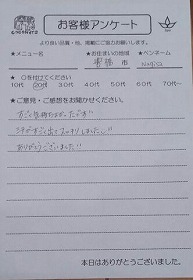 お客様アンケート
より良い品質・性、掲載にご協力お願い致します。
★メニュー名 ★お住まいの地域 ★ペンネーム
市 Norisa
★○を付けてください
10代 20代 30代 40代 50代 60代 70代〜
★ご意見・ご感想をお聞かせください。
すごく気持ちよかったです!!
汗がすごく出てスッキリしました。
ありがとうございました!!
本日はありがとうございました。